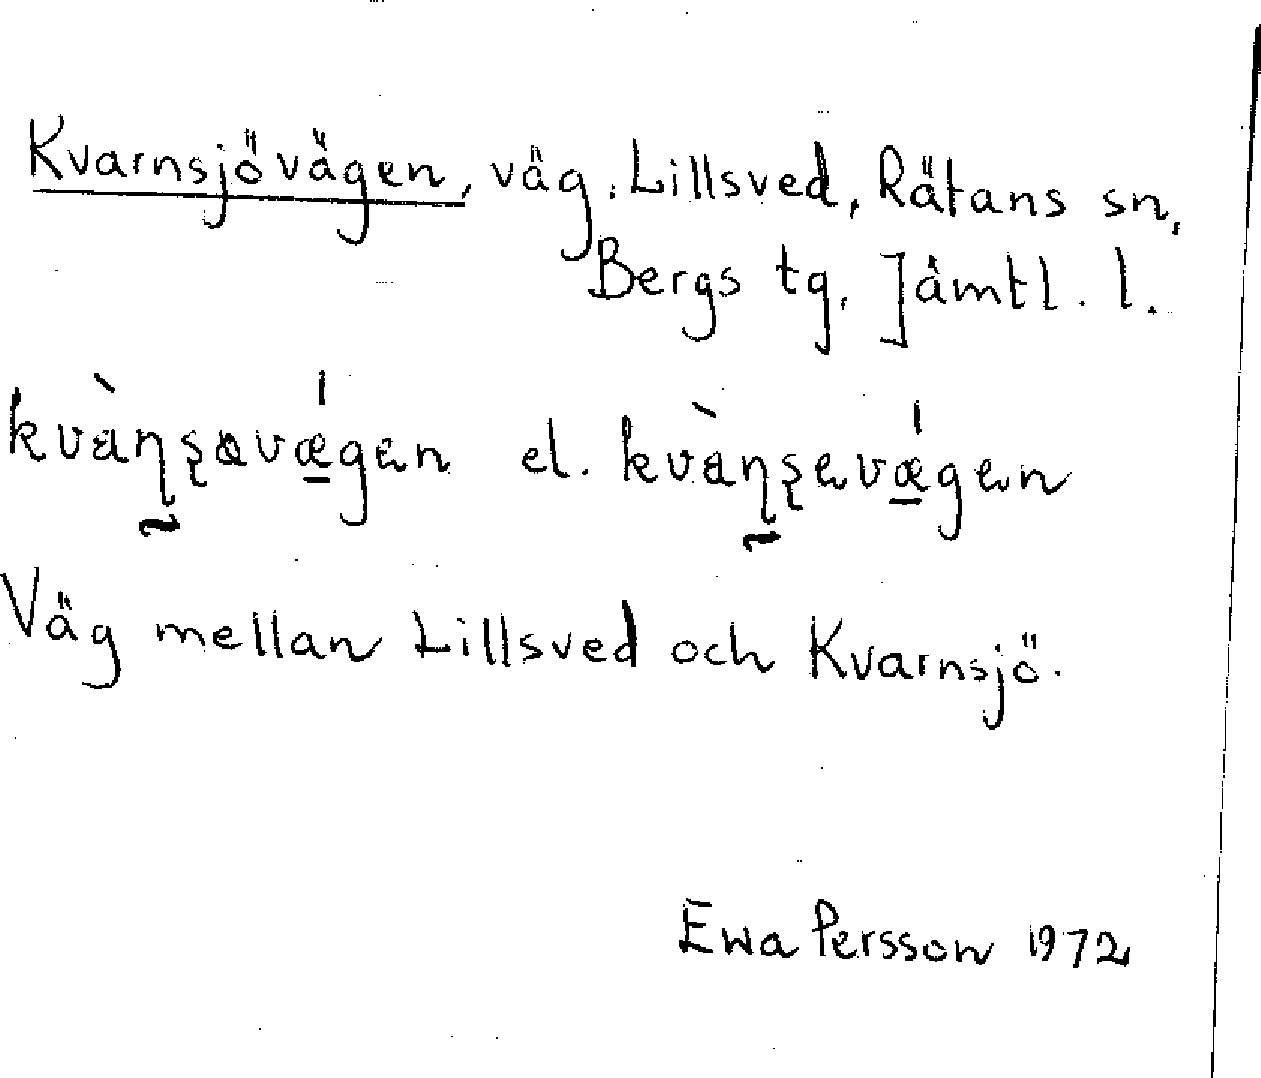 Kvarnsjövägen, väg. Lillsved, Rätans sn,
Bergs tg, Jämtl. l.
kvàɳʂɑvǽgɑn el. kvàɳʂɑvǽgɑn
Väg mellan Lillsved och Kvarnsjö.
Ewa Persson 1972